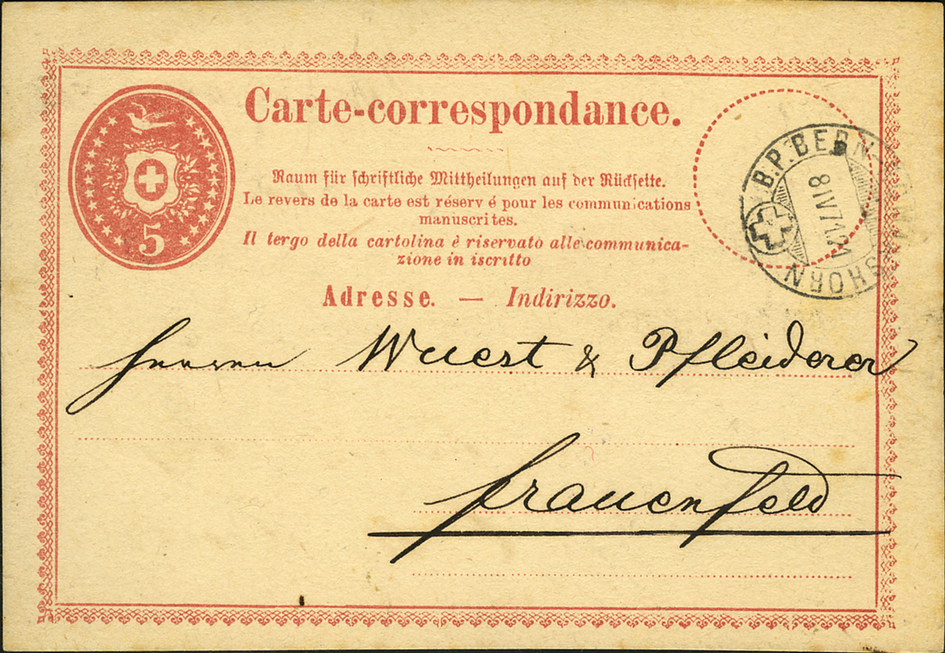 Carte-correspondance.
Raum für schriftliche Mittheilungen auf der Rückseite.
Le revers de la carte est réservé pour les communications
manuscrites.
Il tergo della cartolina è riservato alle communica-
zione in iscritto
Adresse. — Indirizzo.
5
B.P. BERN
Herren Wuest & Pfleiderer
Frauenfeld